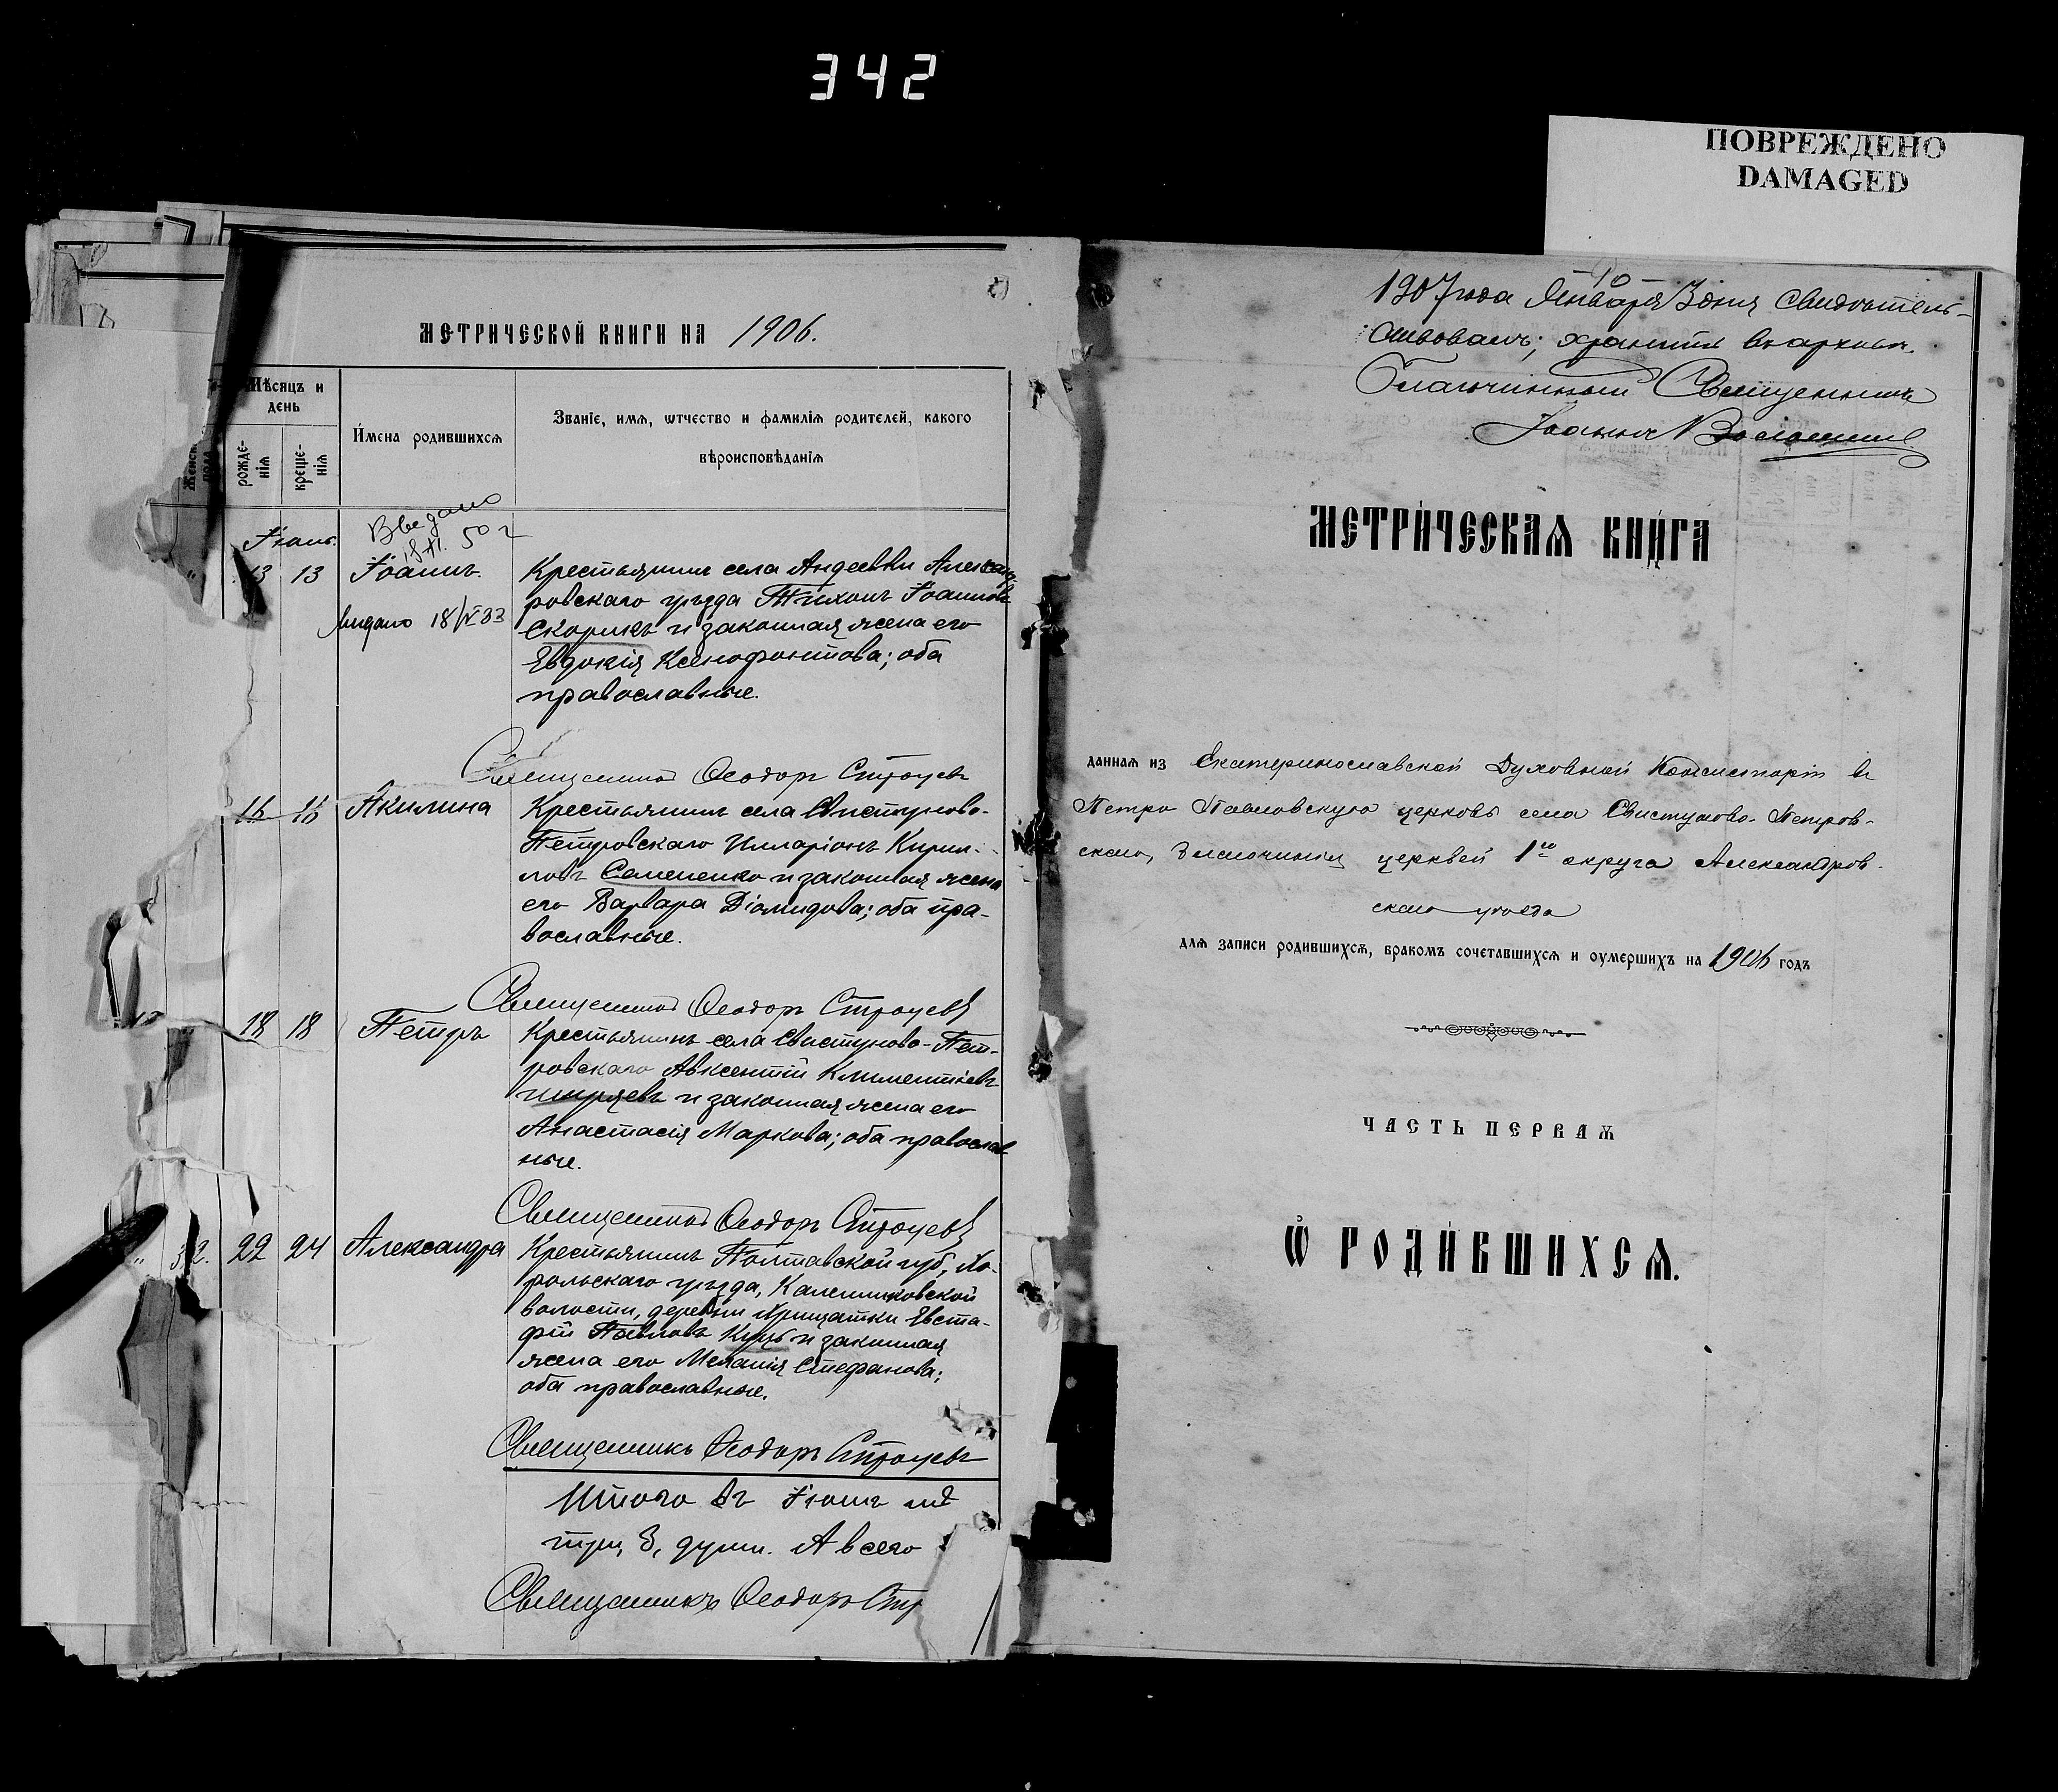 342
ПОВРЕЖДЕНО
DAMAGED
МЕТРИЧЕСКОЙ КНИГИ НА 1906.
Мѣсяцъ и день
рожденія
крещенія
Имена родившихся
Званіе, имя, ѿтчество и фамилія родителей, какого вѣроисповѣданія
13 13 Іоаннъ.
Выдано 18/IV 33
Крестьянинъ села Андеевки Алексан-
ровскаго уѣзда Тихонъ Іоанновъ
Скорикъ и законная жена его
Евдокія Ксенофонтова; оба
православные.
Священникъ Ѳеодоръ
16 16 Акилина
Крестьянинъ села Свистуново-
Петровскаго Илларіонъ Кирил-
ловъ Семененко и законная жена
его Варвара Діомидова; оба пра-
вославные.
Священникъ Ѳеодоръ
18 18 Петръ
Крестьянинъ села Свистуново-Пет-
ровскаго Авксентій Климентіевъ
и законная жена его
Анастасія Маркова; оба православ-
ные.
Священникъ Ѳеодоръ
32. 22 24 Александра
Крестьянинъ Полтавской губ., Хо-
рольскаго уѣзда,
волости, деревни Хрищатки Евста-
фій Павловъ Куцъ и законная
жена его Меланія Стефанова;
оба православные.
Священникъ Ѳеодоръ
Итого въ
душъ. А всего
Священникъ Ѳеодоръ
1907 года Января 3 дня свидѣтель-
ствовалъ; хранить въ архивѣ.
Благочинный Священникъ
Іоаннъ
МЕТРИЧЕСКАЯ КНИГА
данная из Екатеринославской Духовной Консисторіи въ
Петро Павловскую церковь села Свистуново-Петров-
скаго, благочинія церквей 1го округа Александров-
скаго уѣзда
для записи родившихся, бракомъ сочетавшихся и оумершихъ на 1906 годъ
ЧАСТЬ ПЕРВАЯ
Ѿ РОДИВШИХСЯ.